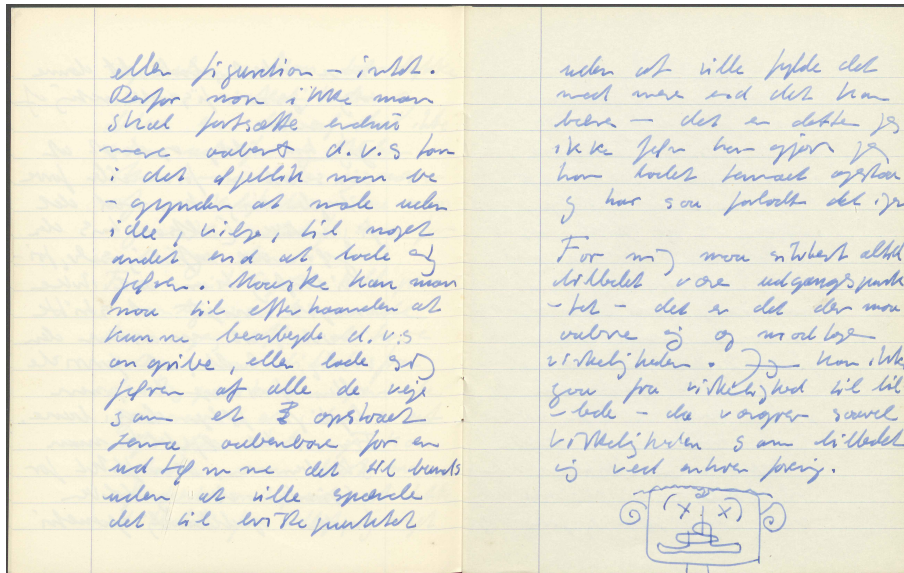 eller figuration – intet.
Derfor maa ikke man
skal fortsætte endnu
mere aabent d.v.s kan
i det øjeblik man be
-gynder at male uden
idee, vilje, til noget
andet end at lade sig
føre. Maaske kan man
naa til efterhaanden at
kunne bearbejde d.v.s
angribe, eller lade sig
føre af alle de veje
som et opstaaet
tema aabenbare for en
udtømme det til bunds
uden at ville spænde
det til bristepunktet
uden at ville fylde det
med mere end det kan
bære – det er dette jeg
ikke før har gjort jeg
har ladet temaet opstaa
og har saa forladt det igen
For mig maa sikkert altid
billedet være udgangspunk
-tet – det er det der maa
aabne sig og modtage
virkeligheden. Jeg kan ikke
gaa fra virkelighed til bil
-lede – da vægrer saavel
virkeligheden som billedet
sig ved enhver